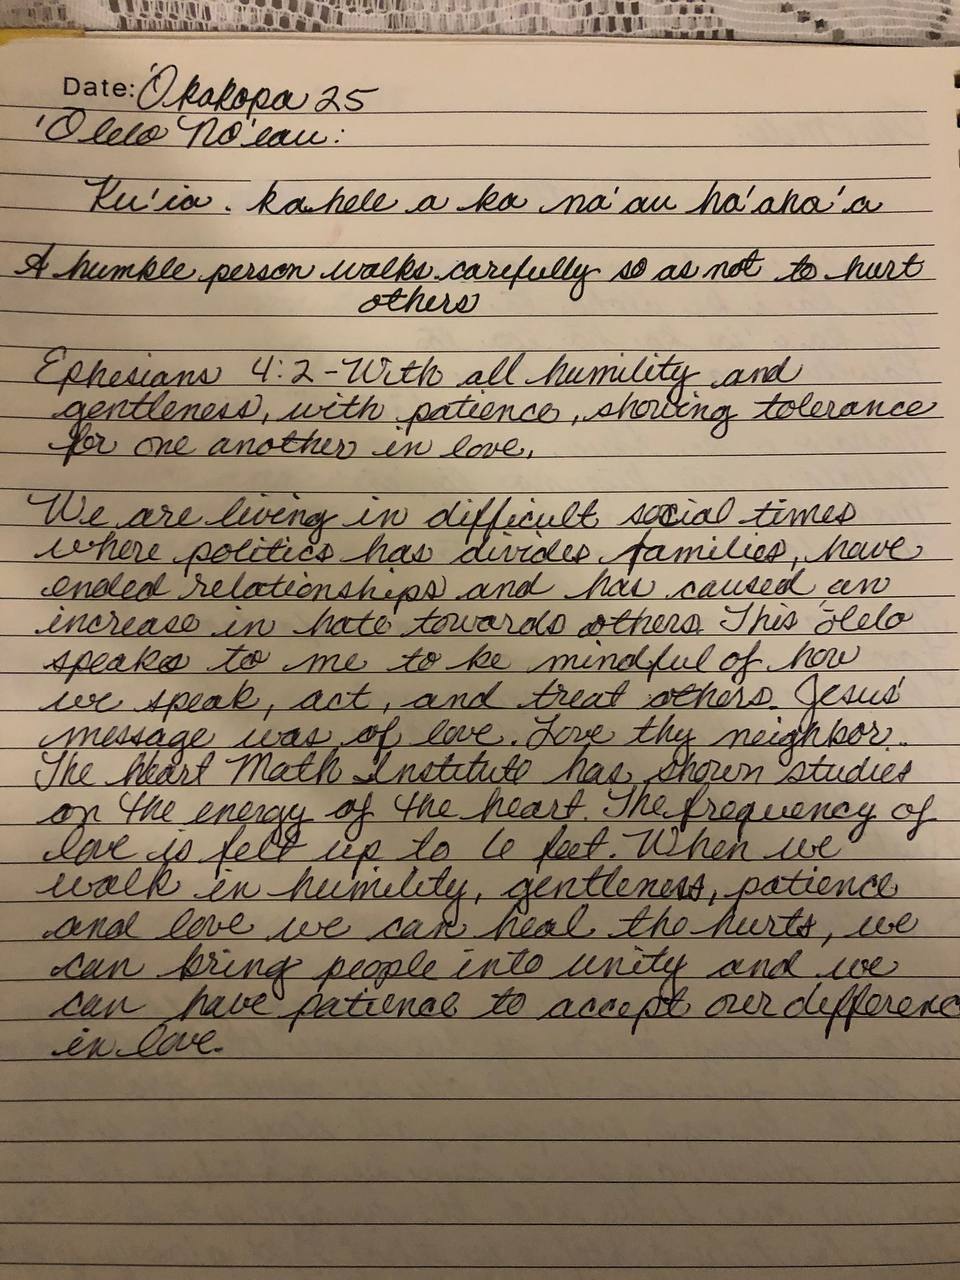 Date: 'Okakopa 25
'Olelo No'eau:
Ku'ia. ka hele a ka na'au ha'aha'a
A humble person walks carefully so as not to hurt
others
Ephesians 4:2 - With all humility and
gentleness, with patience, showing tolerance
for one another in love.
We are living in difficult social times
where politics has divides families, have
ended relationships and has caused an
increase in hate towards others. This ōlelo
speaks to me to be mindful of how
we speak, act, and treat others. Jesus'
message was of love. Love thy neighbor..
The heart Math Institute has shown studies
on the energy of the heart. The frequency of
love is felt up to 6 feet. When we
walk in humility, gentleness, patience
and love we can heal the hurts, we
can bring people into unity and we
can have patience to accept our differenc
in love.